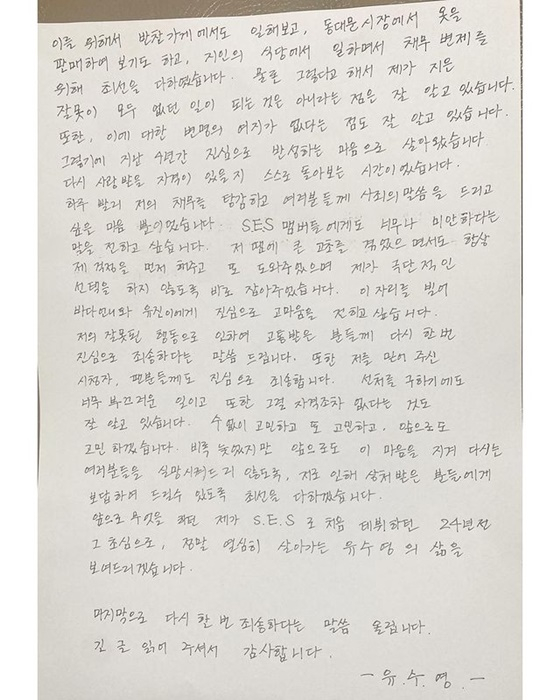 이를 위해서 반찬가게에서도 일해보고, 동대문시장에서 옷을
판매하여 보기도 하고, 지인의 식당에서 일하면서 채무 변제를
위해 최선을 다하였습니다. 물론 그렇다고 해서 제가 지은
잘못이 모두 없던 일이 되는것은 아니라는 점은 잘 알고 있습니다.
또한, 이에 대한 변명의 여지가 없다는 점도 잘 알고 있습니다.
그렇기에 지난 수년간 진심으로 반성하는 마음으로 살아왔습니다.
다시 사랑받을 자격이 있을지 스스로 돌아보는 시간이었습니다.
하루 빨리 저의 채무를 탕감하고 여러분들께 사죄의 말씀을 드리고
싶은 마음 뿐이었습니다. S.E.S 맴버들에게도 너무나 미안하다는
말을 전하고 싶습니다. 저 땜에 큰 고초를 겪었으면서도 항상
제 걱정을 먼저 해주고 또 도와주었으며 제가 극단적인
선택을 하지 않도록 바로 잡아주었습니다. 이 자리를 빌어
바다언니와 유진이에게 진심으로 고마움을 전하고 싶습니다.
저의 잘못된 행동으로 인하여 고통받은 분들께 다시 한번
진심으로 죄송하다는 말씀 드립니다. 또한 저를 믿어 주신
시청자, 팬분들께도 진심으로 죄송합니다. 선처를 구하기에도
너무 부끄러운 일이고 또한 그럴 자격조차 없다는 것도
잘 알고 있습니다. 수없이 고민하고 또 고민하고, 앞으로도
고민 하겠습니다. 비록 늦었지만 앞으로도 이 마음을 지켜 다시는
여러분들을 실망시켜드리 않도록, 저로 인해 상처 받은 분들에게
보답하여 드릴수 있도록 최선을 다하겠습니다.
앞으로 무엇을 하던 제가 S.E.S 로 처음 데뷔하던 24년전
그 초심으로, 정말 열심히 살아가는 유수영의 삶을
보여드리겠습니다.
마지막으로 다시 한번 죄송하다는 말씀 올립니다.
긴 글 읽어 주셔서 감사합니다.
- 유.수.영 -